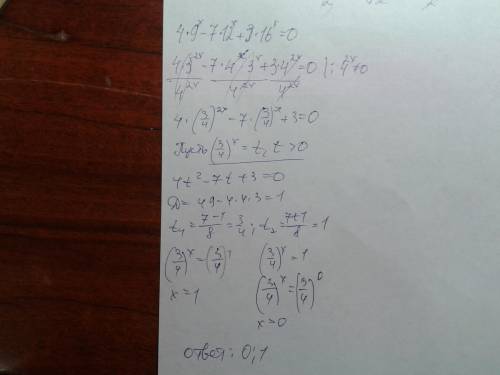 4·9ˣ - 7·12ˣ + 3·16ˣ = 0
4·3²ˣ/4²ˣ - 7·4ˣ·3ˣ/4²ˣ + 3·4²ˣ/4²ˣ = 0 |: 4²ˣ ≠ 0
4·(3/4)²ˣ - 7·(3/4)ˣ + 3 = 0
Пусть (3/4)ˣ = t, t > 0
4t² - 7t + 3 = 0
D = 49 - 4·4·3 = 1
t₁ = (7-1)/8 = 3/4; t₂ = (7+1)/8 = 1
(3/4)ˣ = (3/4)¹ (3/4)ˣ = 1
x = 1 (3/4)ˣ = (3/4)⁰
x = 0
ответ: 0; 1